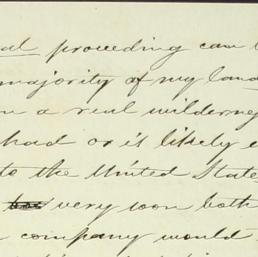 al proceeding can
majority of my land
a real wilderness
had or is likely
to the United State
very soon both
company would